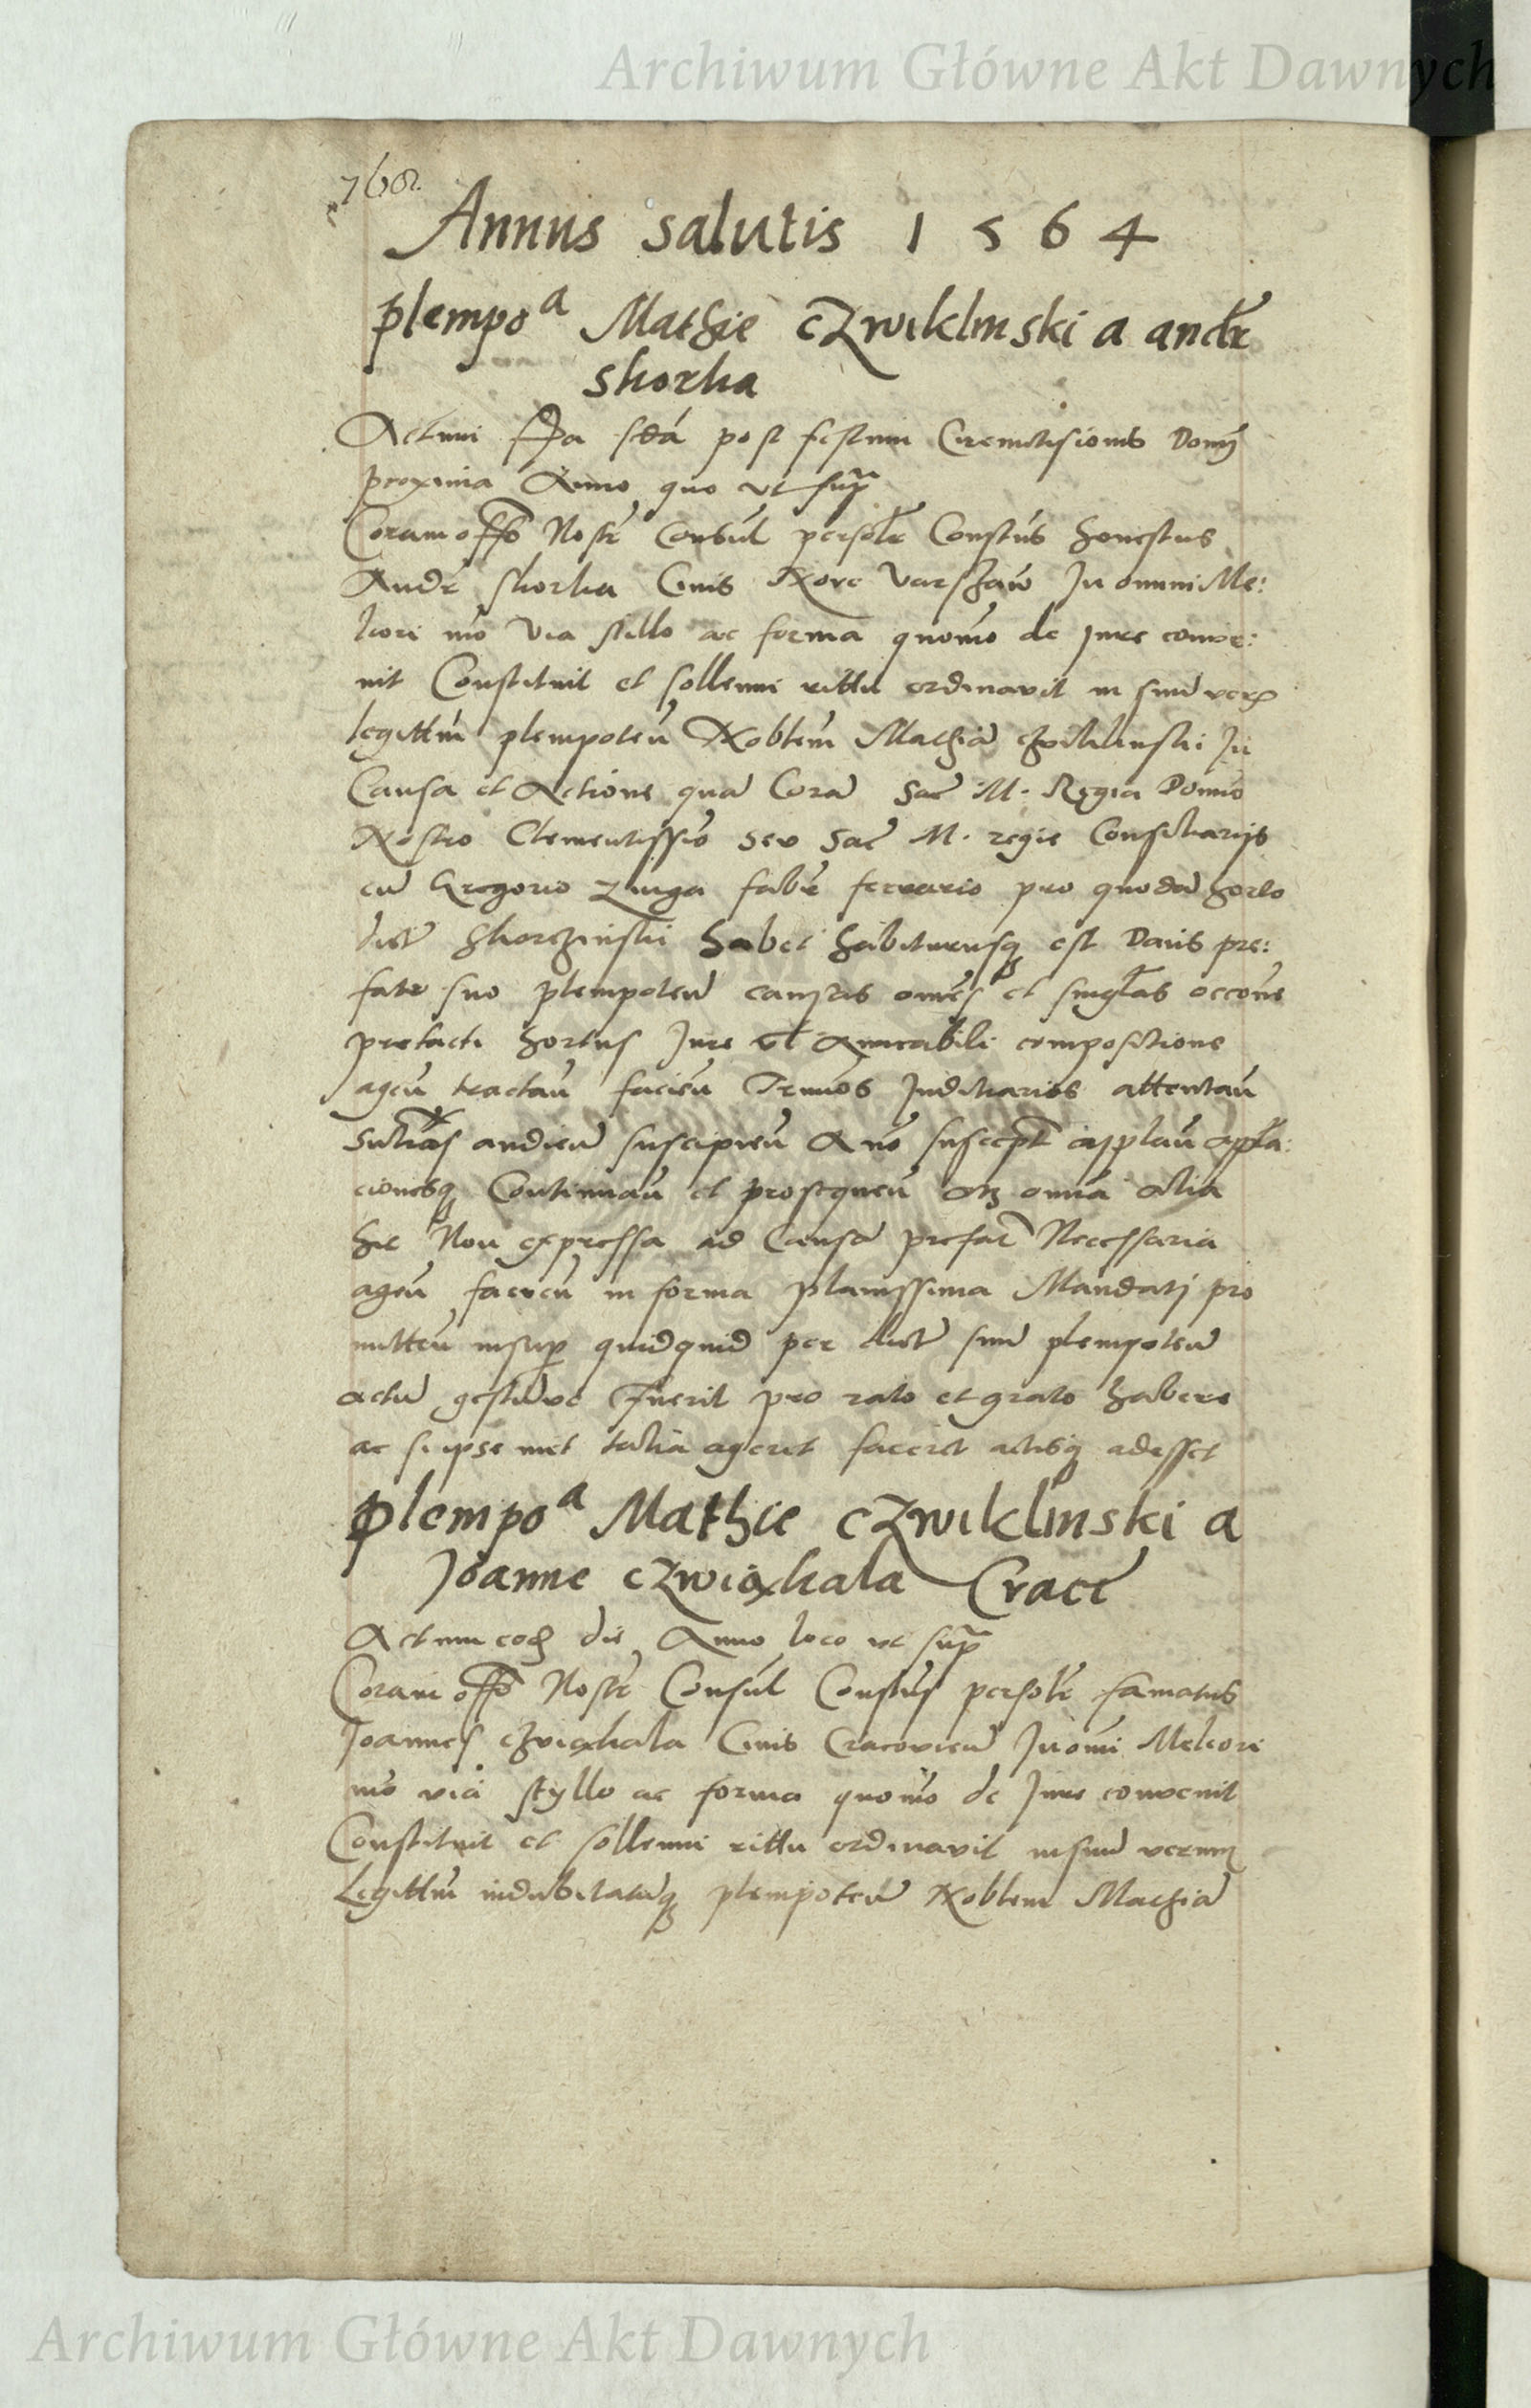 Archiwum Główne Akt Dawnych
768.
Annus salutis 1564
plempo^a Mathie czwiklinski a andr
skorka
Actum fia scda post festum Circumcisionis Domi
proxima Anno quo ut supra
Coram offo Nostr Consul persolr Constus honestus
Andr skorka Civis Nove Varschaw In omni Me:
liori mo via stillo ac forma quomo de jure conve:
nit Constituit et sollenni rittu ordinavit in suu veru
legittim plempoten Noblem Mathia czwiklinski In
Causa et Actione qua Cora Sac M. Regia Domno
Nostro Clementissio seu Sac M. regie Consiliarijs
cu Gregorio zinga fabr ferrario pro quoda horto
dict Skorczinski habet habiturusq est Dans pre:
fato suo plempoten causas omes et singlas occone
prefacti hortus Jure vl Amicabili compositione
agen tractan facien Termos Judiciarios attentan
sntias audien suscipien A no suscept appllan appla:
cionesq Continuan et prosequen Atq omia Alia
hic Non expressa ad Causa prefat Necessaria
agen facien in forma planissima Mandati pro
mitten insup quidquid per dict suu plempoten
actu gestuve fuerit pro rato et grato habere
ac si ipse met talia ageret faceret actisq adesset
plempo^a Mathie czwiklinski a
Joanne czwiakala Crace
Actum eod die Anno loco ut supra
Coram offo Nostr Consul Constus persolr famatus
Joannes czwiakala Civis Cracovien In omi Meliori
mo via styllo ac forma quomo de Jure convenit
Constituit et sollenni rittu ordinavit in suu verum
Legittim indubitatuq plempoten Noblem Mathia
Archiwum Główne Akt Dawnych